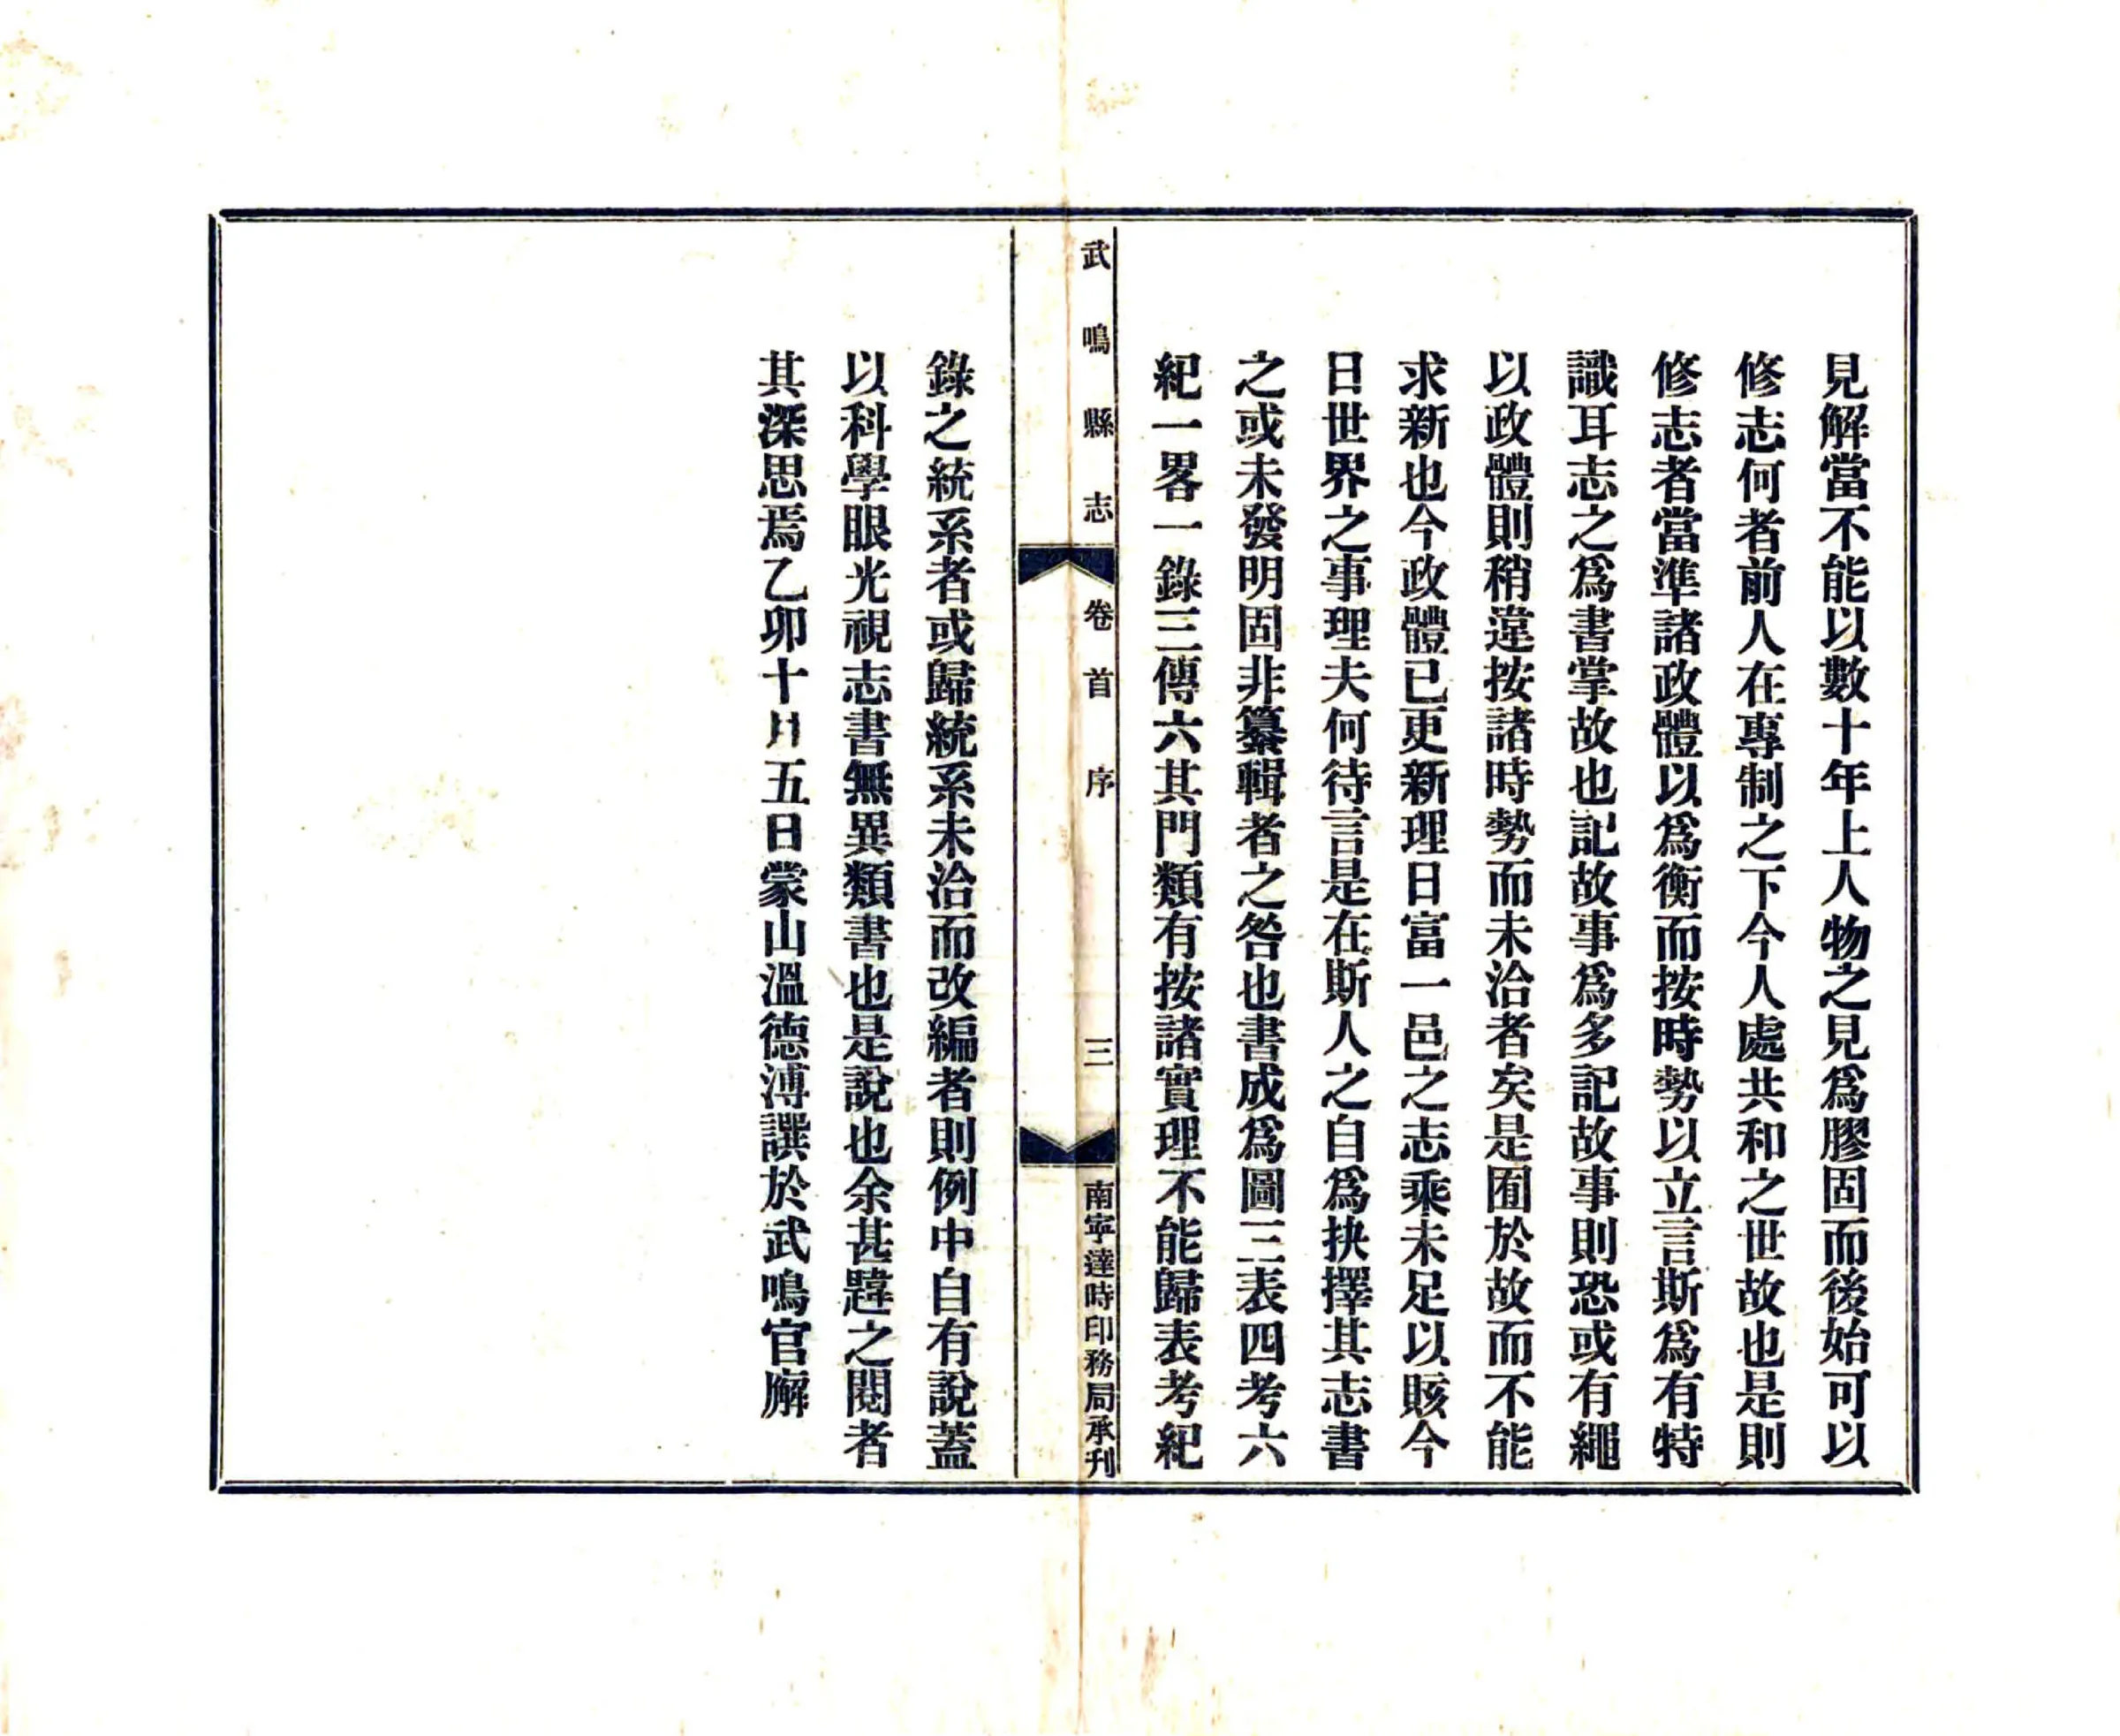 見解當不能以數十年上人物之見爲膠固而後始可以
修志何者前人在專制之下今人處共和之世故也是則
修志者當準諸政體以爲衡而按時勢以立言斯爲有特
識耳志之爲書掌故也記故事爲多記故事則恐或有繩
以政體則稍違按諸時勢而未洽者矣是囿於故而不能
求新也今政體已更新理日富一邑之志乘未足以賅今
日世界之事理夫何待言是在斯人之自爲抉擇其志書
之或未發明固非纂輯者之咎也書成爲圖三表四考六
紀一畧一錄三傳六其門類有按諸實理不能歸表考紀
武鳴縣志
卷首
序
三
南寧達時印務局承刊
錄之統系者或歸統系未洽而改編者則例中自有說蓋
以科學眼光視志書無異類書也是說也余甚韙之閱者
其深思焉乙卯十月五日蒙山溫德溥譔於武鳴官廨